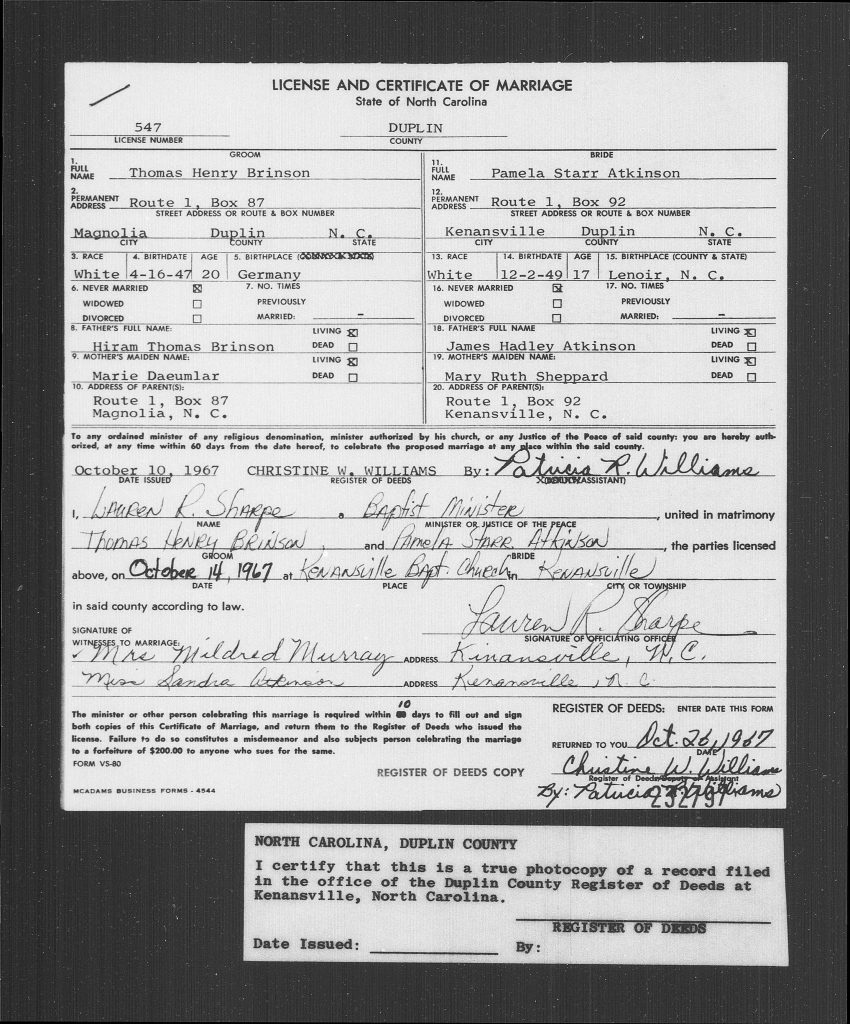 LICENSE AND CERTIFICATE OF MARRIAGE
State of North Carolina
547 DUPLIN
LICENSE NUMBER COUNTY
GROOM
1. FULL NAME Thomas Henry Brinson
2. PERMANENT ADDRESS Route 1, Box 87
STREET ADDRESS OR ROUTE & BOX NUMBER
Magnolia Duplin N. C.
CITY COUNTY STATE
3. RACE 4. BIRTHDATE AGE 5. BIRTHPLACE
White 4-16-47 20 Germany
6. NEVER MARRIED ☒ 7. NO. TIMES
WIDOWED ☐ PREVIOUSLY
DIVORCED ☐ MARRIED: –
8. FATHER'S FULL NAME: LIVING ☒
Hiram Thomas Brinson DEAD ☐
9. MOTHER'S MAIDEN NAME: LIVING ☒
Marie Daeumlar DEAD ☐
10. ADDRESS OF PARENT(S):
Route 1, Box 87
Magnolia, N. C.
BRIDE
11. FULL NAME Pamela Starr Atkinson
12. PERMANENT ADDRESS Route 1, Box 92
STREET ADDRESS OR ROUTE & BOX NUMBER
Kenansville Duplin N. C.
CITY COUNTY STATE
13. RACE 14. BIRTHDATE AGE 15. BIRTHPLACE (COUNTY & STATE)
White 12-2-49 17 Lenoir, N. C.
16. NEVER MARRIED ☒ 17. NO. TIMES
WIDOWED ☐ PREVIOUSLY
DIVORCED ☐ MARRIED: –
18. FATHER'S FULL NAME LIVING ☒
James Hadley Atkinson DEAD ☐
19. MOTHER'S MAIDEN NAME: LIVING ☒
Mary Ruth Sheppard DEAD ☐
20. ADDRESS OF PARENT(S):
Route 1, Box 92
Kenansville, N. C.
To any ordained minister of any religious denomination, minister authorized by his church, or any Justice of the Peace of said county: you are hereby auth-
orized, at any time within 60 days from the date hereof, to celebrate the proposed marriage at any place within the said county.
October 10, 1967 CHRISTINE W. WILLIAMS By: Patricia R. Williams
DATE ISSUED REGISTER OF DEEDS ASSISTANT)
I, Lauren R. Sharpe a Baptist Minister, united in matrimony
NAME MINISTER OR JUSTICE OF THE PEACE
Thomas Henry Brinson, and Pamela Starr Atkinson, the parties licensed
GROOM BRIDE
above, on October 14, 1967 at Kenansville Bapt. Church in Kenansville
DATE PLACE CITY OR TOWNSHIP
in said county according to law. Lauren R. Sharpe
SIGNATURE OF OFFICIATING OFFICER
SIGNATURE OF
WITNESSES TO MARRIAGE:
✓ Mrs Mildred Murray ADDRESS Kinansville, N.C.
Miss Sandra Atkinson ADDRESS Kenansville, N.C.
10
The minister or other person celebrating this marriage is required within days to fill out and sign
both copies of this Certificate of Marriage, and return them to the Register of Deeds who issued the
license. Failure to do so constitutes a misdemeanor and also subjects person celebrating the marriage
to a forfeiture of $200.00 to anyone who sues for the same.
FORM VS-80
REGISTER OF DEEDS COPY
MCADAMS BUSINESS FORMS - 4544
REGISTER OF DEEDS: ENTER DATE THIS FORM
RETURNED TO YOU Oct. 26, 1967
DATE
Christine W. Williams
Register of Deeds Deputy or Assistant
By: Patricia R. Williams
NORTH CAROLINA, DUPLIN COUNTY
I certify that this is a true photocopy of a record filed
in the office of the Duplin County Register of Deeds at
Kenansville, North Carolina.
REGISTER OF DEEDS
Date Issued: By: